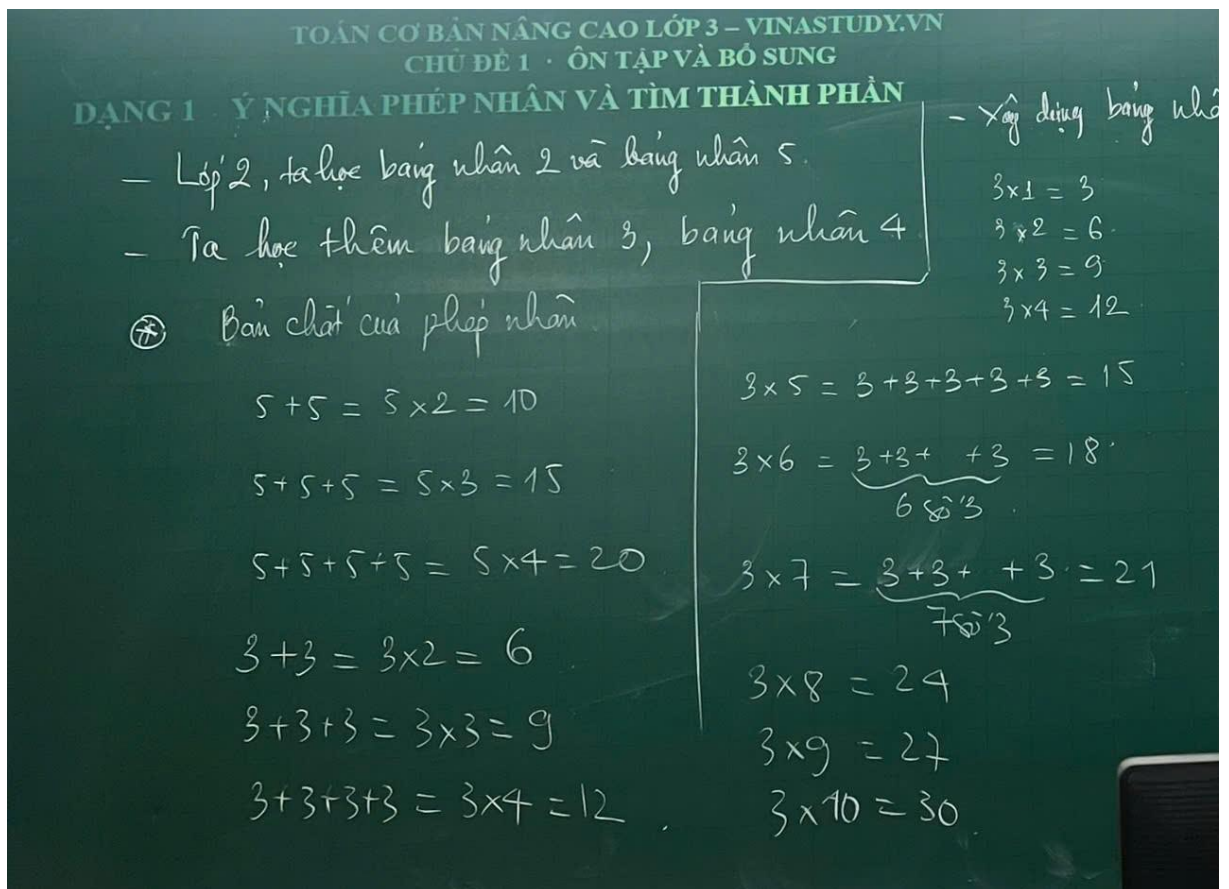 TOÁN CƠ BẢN NÂNG CAO LỚP 3 – VINASTUDY.VN
CHỦ ĐỀ 1 · ÔN TẬP VÀ BỔ SUNG
DẠNG 1 Ý NGHĨA PHÉP NHÂN VÀ TÌM THÀNH PHẦN
- Lớp 2, ta học bảng nhân 2 và bảng nhân 5.
- Ta học thêm bảng nhân 3, bảng nhân 4
* Bản chất của phép nhân
5+5 = 5×2 = 10
5+5+5 = 5×3 = 15
5+5+5+5 = 5×4 = 20
3+3 = 3×2 = 6
3+3+3 = 3×3 = 9
3+3+3+3 = 3×4 = 12
- Xây dựng bảng
3×1 = 3
3×2 = 6
3×3 = 9
3×4 = 12
3×5 = 3+3+3+3+3 = 15
3×6 = 3+3+ +3 = 18
6 số 3
3×7 = 3+3+ +3 = 21
7 số 3
3×8 = 24
3×9 = 27
3×10 = 30